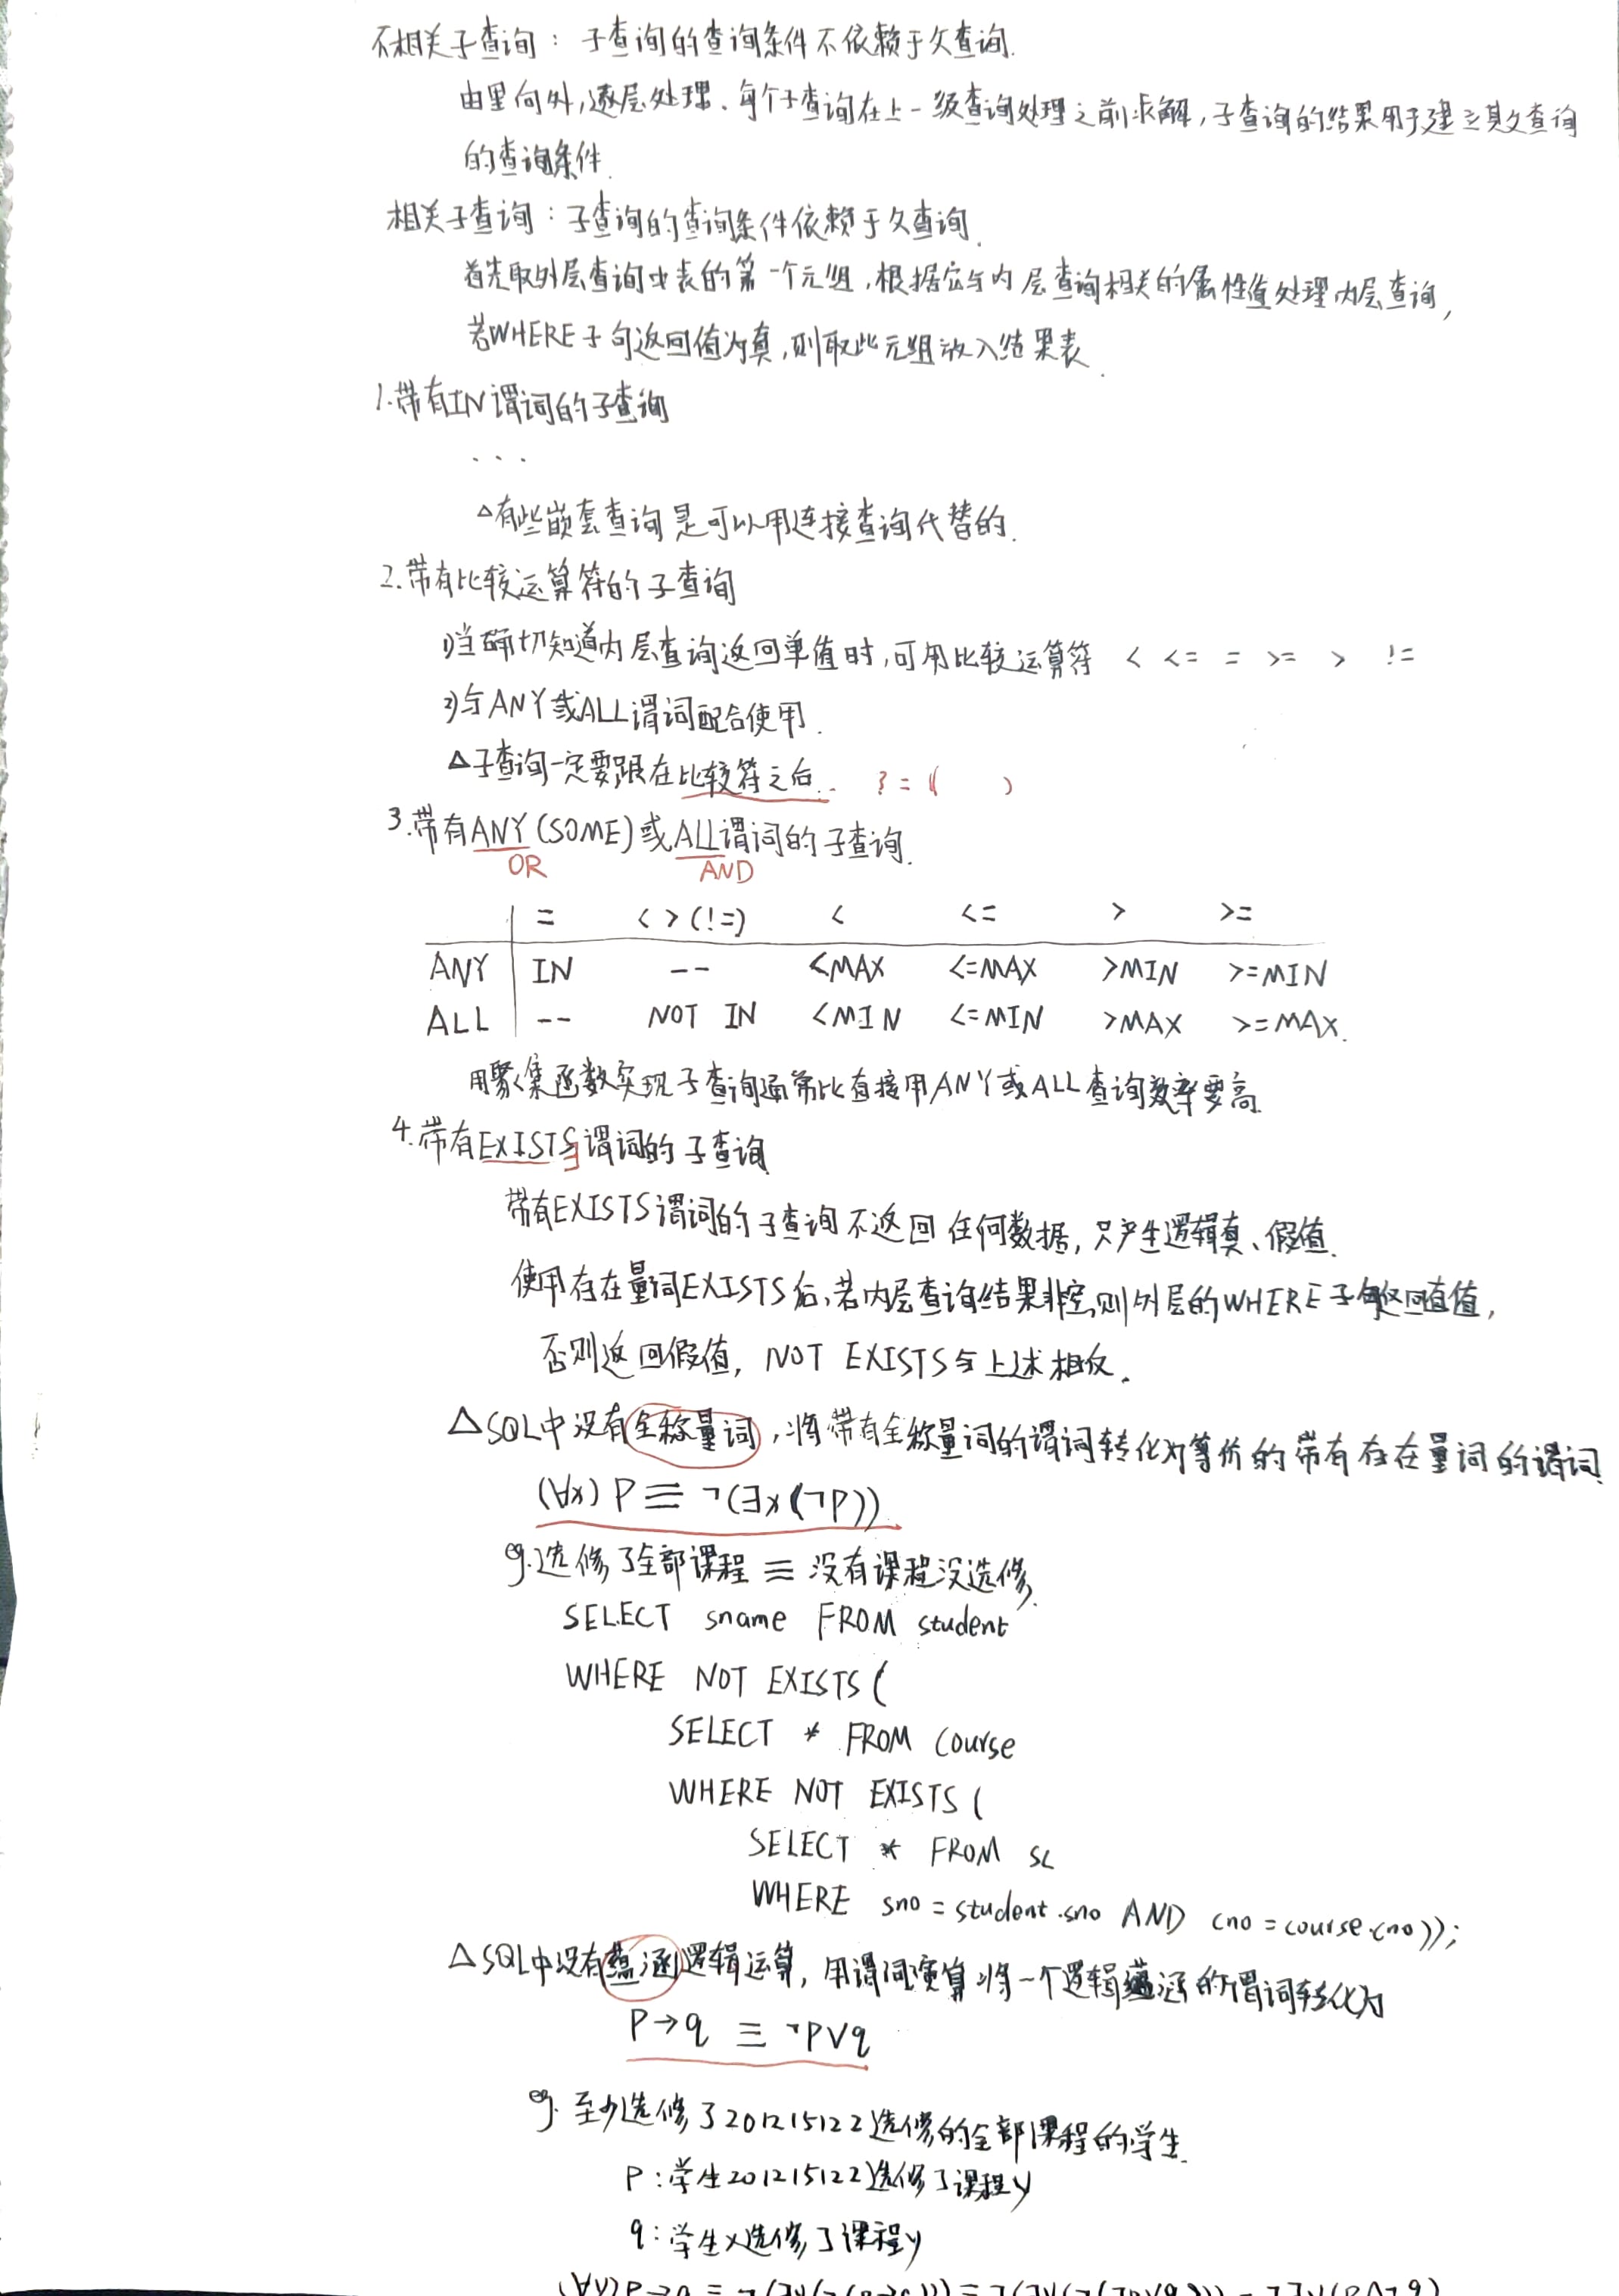 不相关子查询：子查询的查询条件不依赖于父查询.
由里向外,逐层处理、每个子查询在上一级查询处理之前求解,子查询的结果用于建立其父查询
的查询条件.
相关子查询：子查询的查询条件依赖于父查询.
首先取外层查询中表的第一个元组,根据它与内层查询相关的属性值处理内层查询,
若WHERE子句返回值为真,则取此元组放入结果表.
1.带有IN谓词的子查询
...
△有些嵌套查询是可以用连接查询代替的.
2.带有比较运算符的子查询
1)当确切知道内层查询返回单值时,可用比较运算符 < <= = >= > !=
2)与ANY或ALL谓词配合使用.
△子查询一定要跟在比较符之后.. ?=( )
3.带有ANY(SOME)或ALL谓词的子查询.
OR AND
= <>(!=) < <= > >=
ANY IN -- <MAX <=MAX >MIN >=MIN
ALL -- NOT IN <MIN <=MIN >MAX >=MAX.
用聚集函数实现子查询通常比直接用ANY或ALL查询效率要高.
4.带有EXISTS∃谓词的子查询
带有EXISTS谓词的子查询不返回任何数据,只产生逻辑真、假值.
使用存在量词EXISTS后,若内层查询结果非空,则外层的WHERE子句返回真值,
否则返回假值, NOT EXISTS与上述相反.
△SQL中没有全称量词,将带有全称量词的谓词转化为等价的带有存在量词的谓词.
(∀x)P≡¬(∃x(¬P))
eg.选修了全部课程≡没有课程没选修.
SELECT sname FROM student
WHERE NOT EXISTS(
SELECT * FROM course
WHERE NOT EXISTS(
SELECT * FROM sc
WHERE sno=student.sno AND cno=course.cno));
△SQL中没有蕴涵逻辑运算,用谓词演算将一个逻辑蕴涵的谓词转化为
P→q ≡ ¬P∨q
eg. 至少选修了201215122选修的全部课程的学生.
P:学生201215122选修了课程y
q:学生x选修了课程y